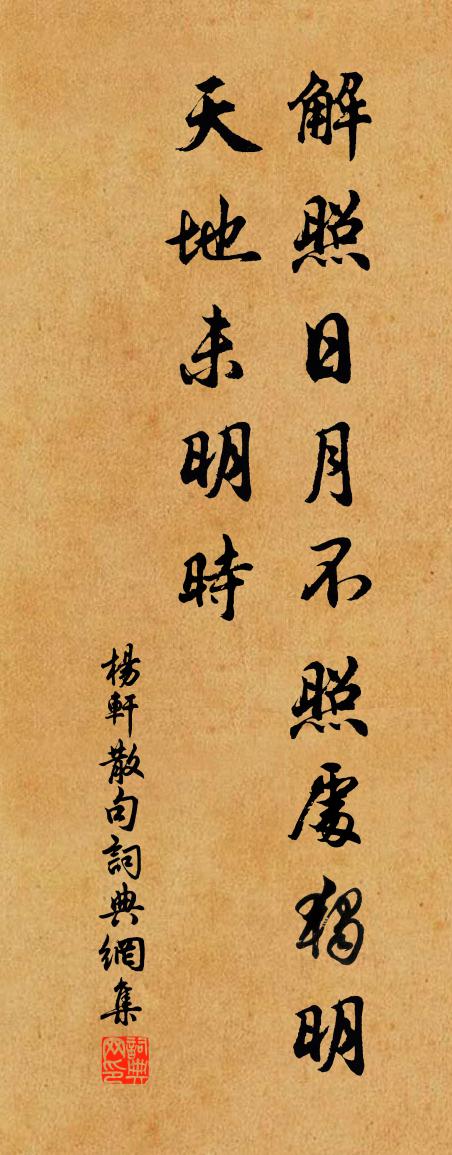 解照日月不照處獨明
天地未明時
楊軒散句詞典網集
詞典网印